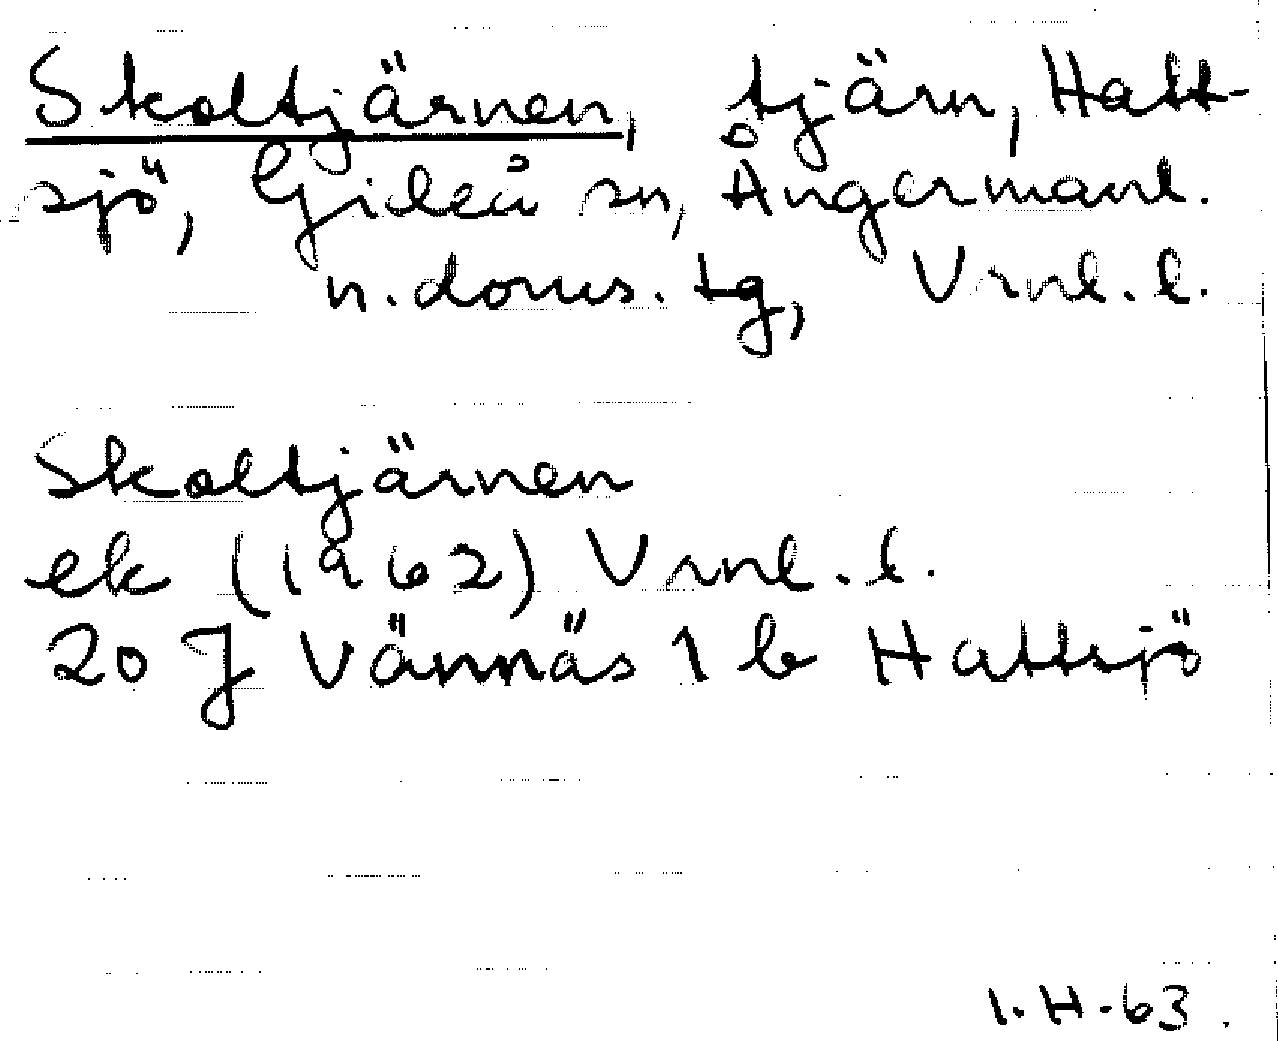 Skoltjärnen, tjärn, Hatt-
sjö, Gideå sn, Ångermanl.
n. doms. tg, Vrnl. l.
Skoltjärnen
ek (1962) Vrnl. l.
20 J Vännäs 1 b Hattsjö
I. H. 63.